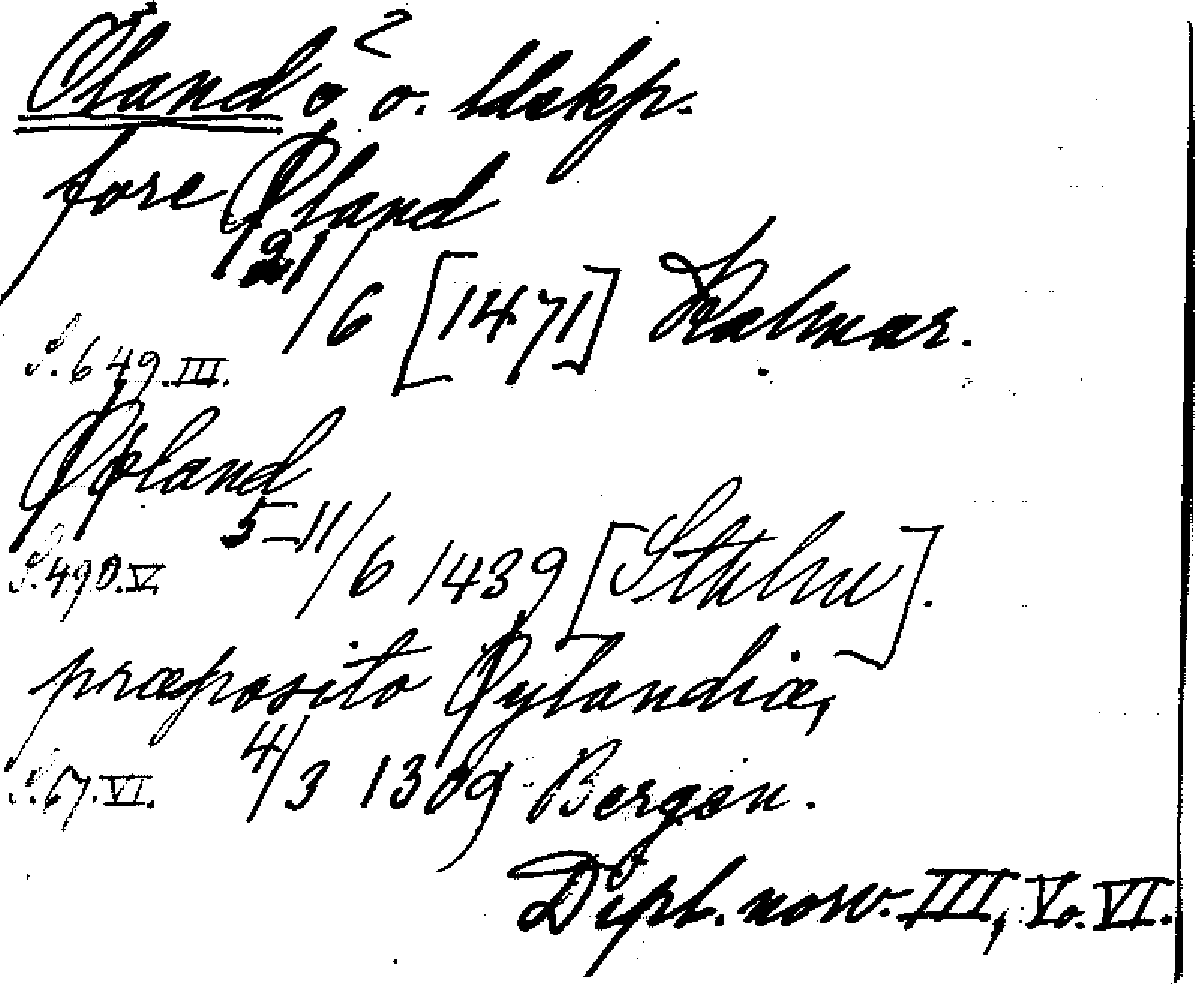 Öland ö o. ldskp.
fore Øland
21/6 [1471] Kalmar.
S. 649. III.
Øøland
S. 490. V 5–11/6 1439 [Sthlm].
præposito Øylandiæ,
S. 67. VI. 4/3 1309 Bergen.
Dipl. norv. III, V o. VI.